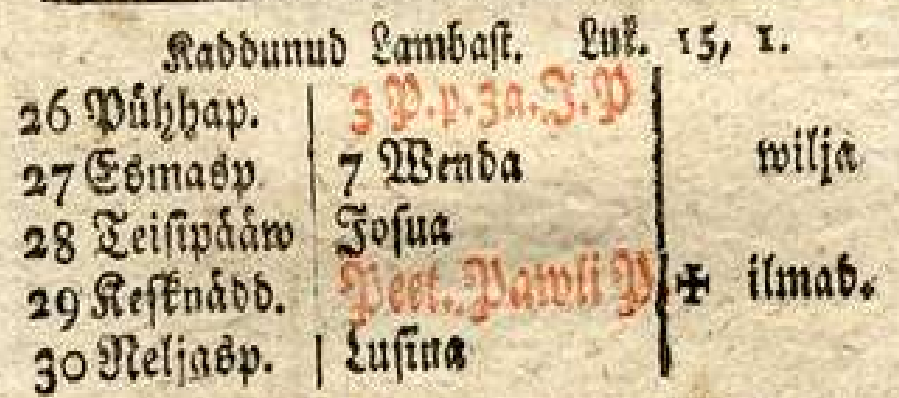 Kaddunud Lambast. Luk. 15, 1.
26 Pühhap. 3 P. p. 3a. J. P
27 Esmasp. 7 Wenda wilja
28 Teisipääw Josua
29 Kesknädd. Peet. Pawli P ✠ ilmad.
30 Neljasp. Lusina